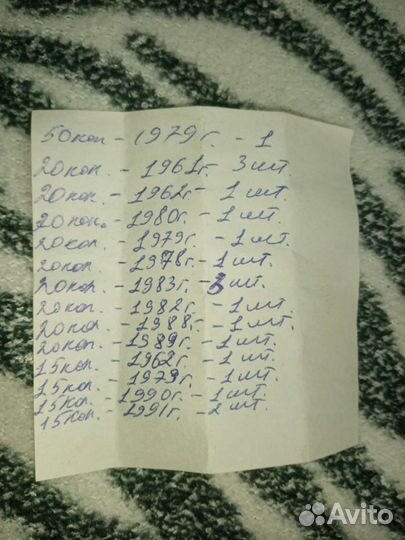 50коп. - 1979г. - 1
20коп. - 1961г. 3 шт.
20коп. - 1962г. - 1 шт.
20коп. - 1980г. - 1 шт.
20коп. - 1979г. - 1 шт.
20коп. - 1978г. - 1 шт.
20коп. - 1983г. - 3 шт.
20коп. - 1982г. - 1 шт.
20коп. - 1988г. - 1 шт.
20коп. - 1989г. - 1 шт.
15коп. - 1962г. - 1 шт.
15коп. - 1979г. - 1 шт.
15коп. - 1990г. - 1 шт.
15коп. - 1991г. - 2 шт.
Avito